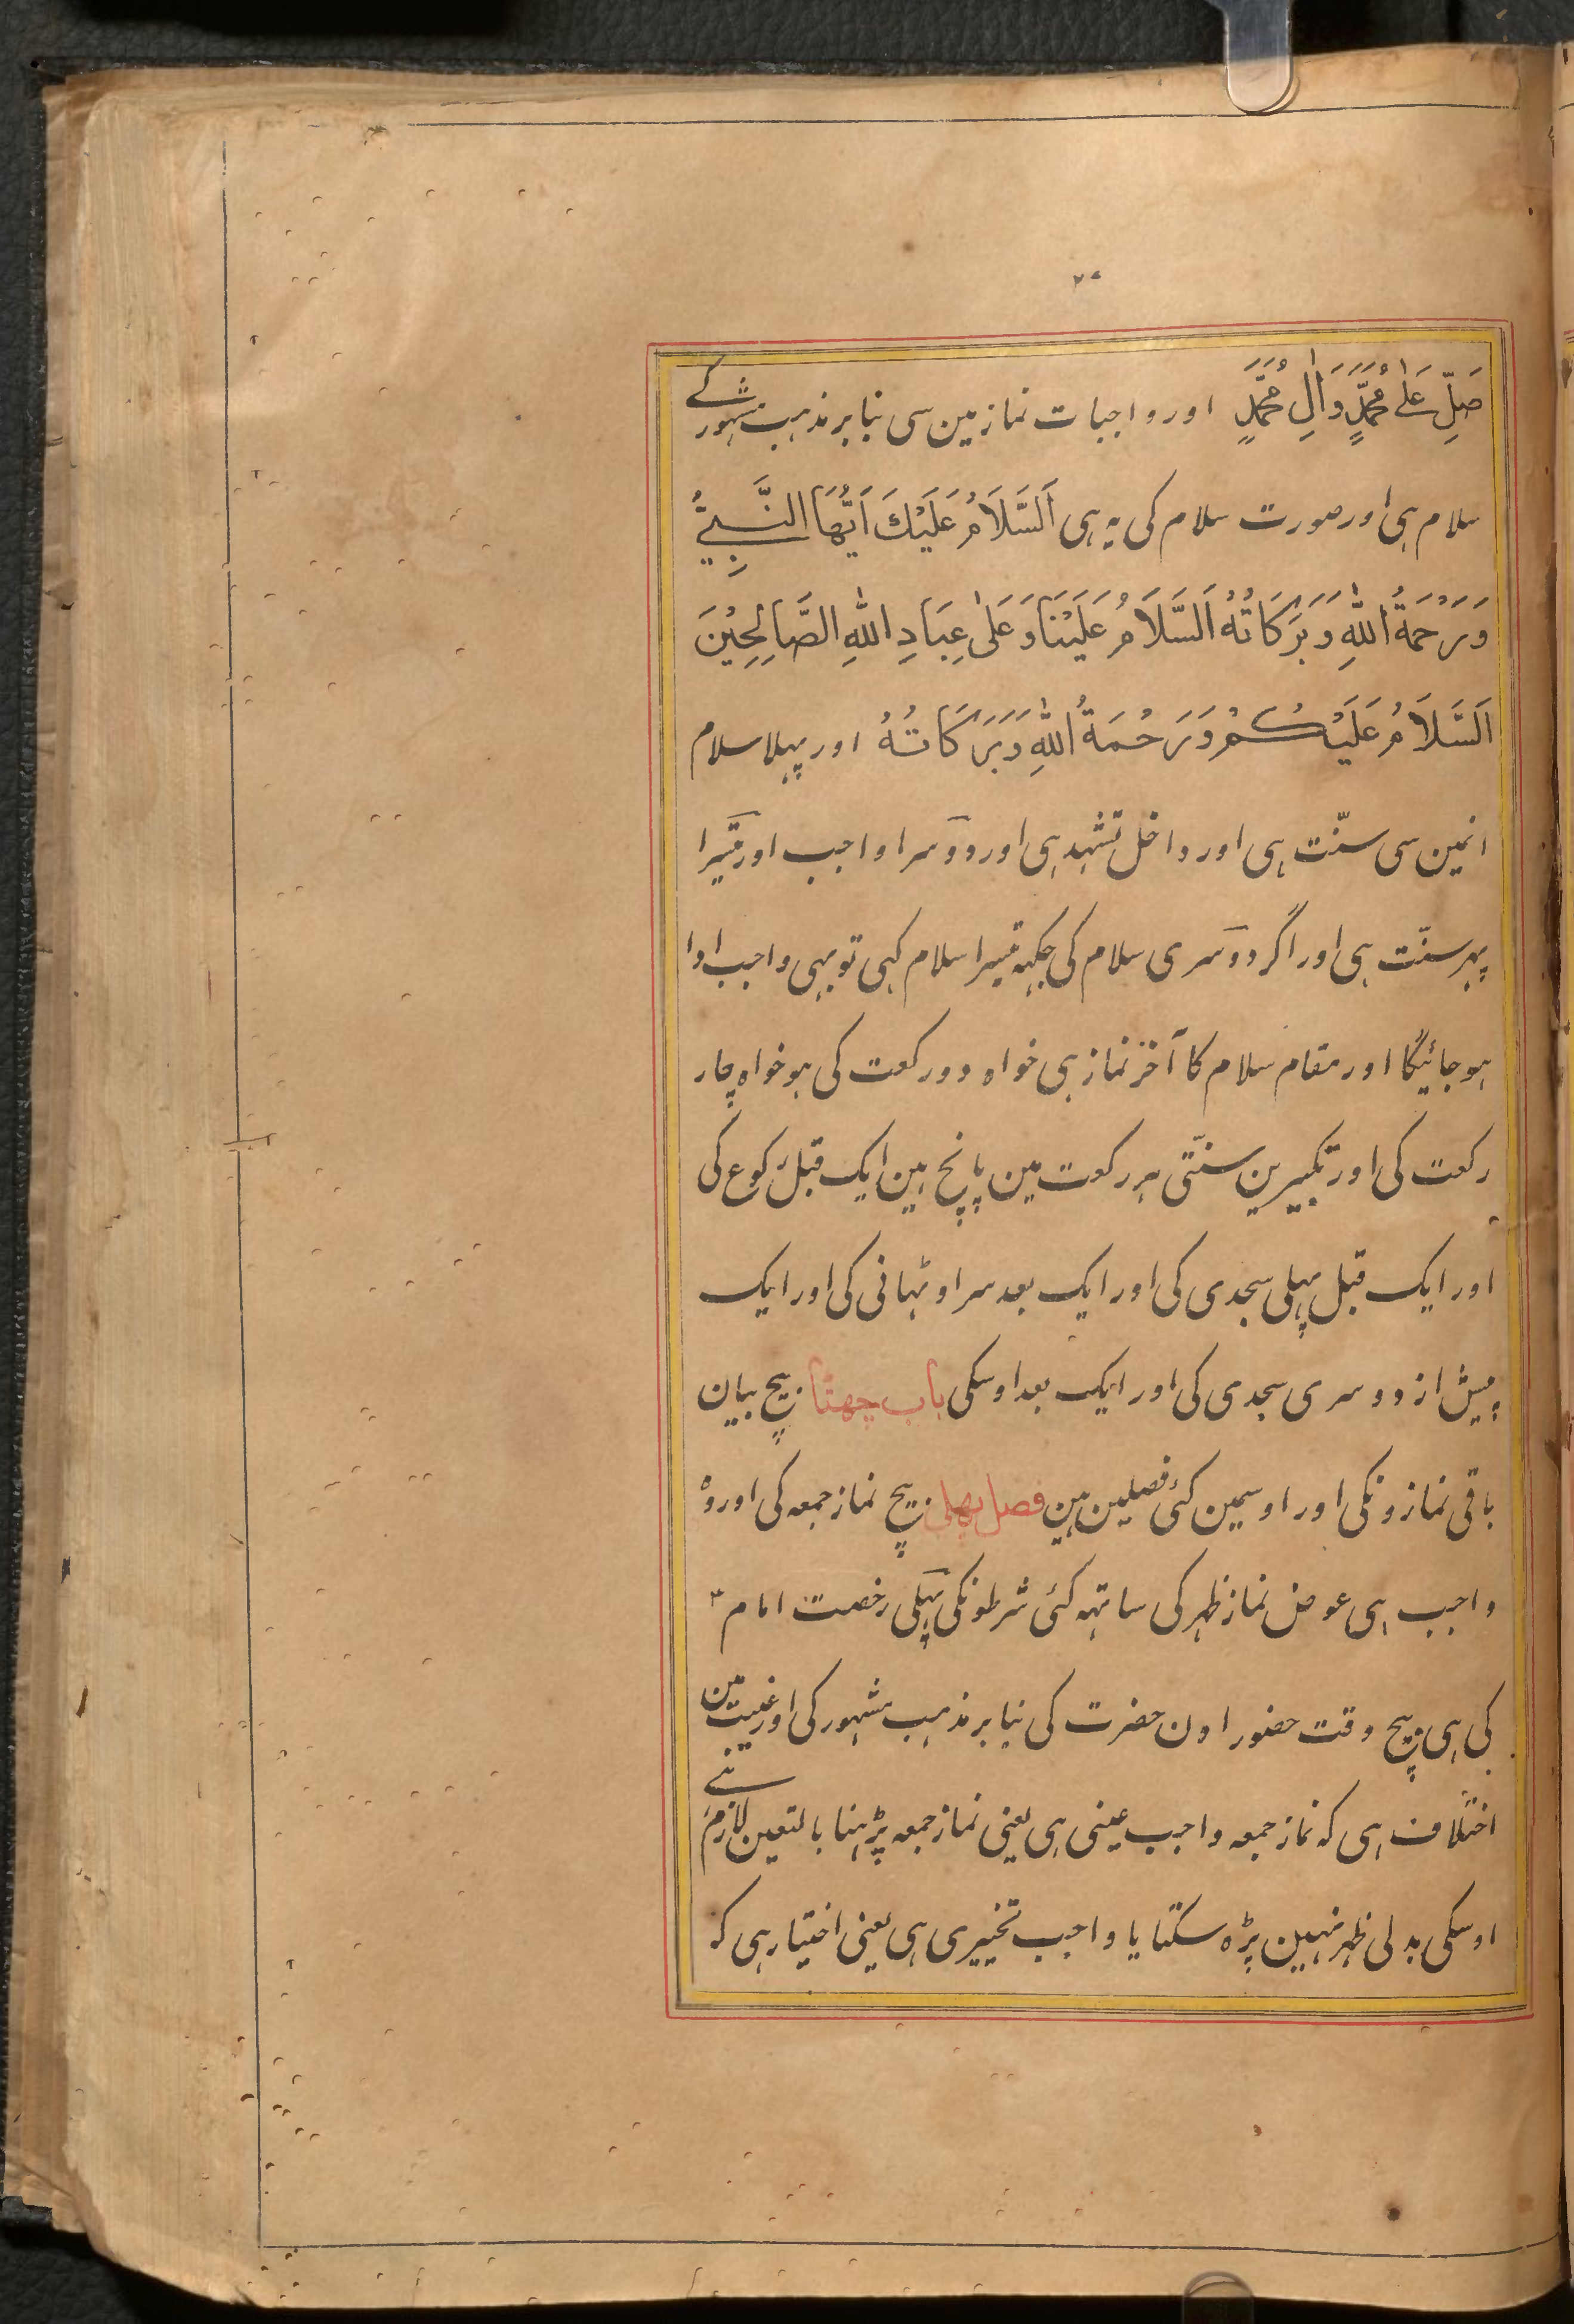 صَلِّ عَلٰی مُحَمَّدٍ وَاٰلِ مُحَمَّدٍ اور واجبات نماز مین سی بنابر مذہب مشہور کے
سلام ہی اور صورت سلام کی یہ ہی اَلسَّلَامُ عَلَیْكَ اَیُّهَا النَّبِیُّ
وَرَحْمَةُ اللّٰهِ وَبَرَكَاتُهُ اَلسَّلَامُ عَلَیْنَا وَعَلٰی عِبَادِ اللّٰهِ الصَّالِحِیْنَ
اَلسَّلَامُ عَلَیْكُمْ وَرَحْمَةُ اللّٰهِ وَبَرَكَاتُهُ اور پہلا سلام
انمین سی سنّت ہی اور داخل تشہد ہی اور دوسرا واجب اور تیسرا
پہر سنّت ہی اور اگر دوسری سلام کی جگہہ تیسرا سلام کہی تو بہی واجب ادا
ہو جائیگا اور مقام سلام کا آخر نماز ہی خواہ دو رکعت کی ہو خواہ چار
رکعت کی اور تکبیرین سنّتی ہر رکعت مین پانچ ہین ایک قبل رکوع کی
اور ایک قبل پہلی سجدی کی اور ایک بعد سر اوٹہانی کی اور ایک
پیش از دوسری سجدی کی اور ایک بعد اوسکی باب چھٹا بیچ بیان
باقی نمازونکی اور اوسمین کئی فصلین ہین فصل پہلی بیچ نماز جمعہ کی اور وہ
واجب ہی عوض نماز ظہر کی ساتہہ کئی شرطونکی پہلی رخصت امام ۴
کی ہی بیچ وقت حضور اون حضرت کی بنابر مذہب مشہور کی اور غیبت مین
اختلاف ہی کہ نماز جمعہ واجب عینی ہی یعنی نماز جمعہ پڑہنا بالتعین لازم ہے
اوسکی بدلی ظہر نہین پڑہ سکتا یا واجب تخییری ہی یعنی اختیار ہی کہ